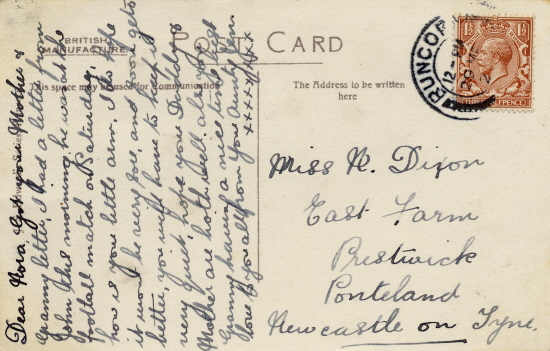 BRITISH
MANUFACTURE
POST CARD
This space may be used for Communication
The Address to be written
here
RUNCORN
12 - PM
29
2
1½ 1½
THREE HALFPENCE
Dear Nora, Got your Mother &
Granny letter, I had a letter from
John this morning, he was at the
football match on Saturday,
how is your little arm, I do hope
it won't be very sore, and soon gets
better you will have to keep it
very quiet, hope your Daddy &
Mother are both well also your
Granny having a nice time. best
love to you all from your Aunt
xxxx
Miss N. Dixon
East Farm
Prestwick
Ponteland
Newcastle on Tyne.